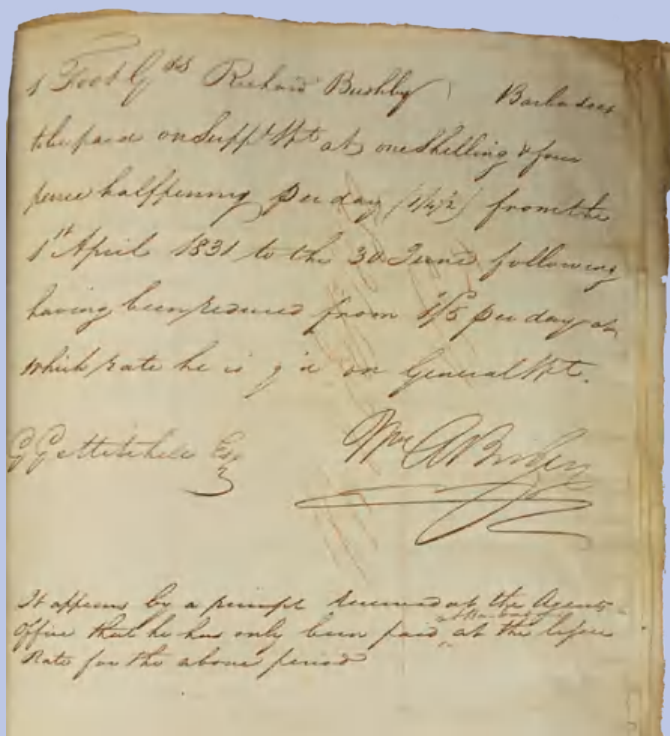 1 Foot Gds Richard Bushby Barbadoes
to be paid on Suppt at one Shilling & four
pence halfpenny per day (1/4½) from the
1st April 1831 to the 30 June following
having been reduced from 1/5 per day at
which rate he is on General
G G Mitchell Esq
Wm
It appears by a receipt received at the Agents
Office that he has only been paid at Barbadoes at the
Rate for the above period